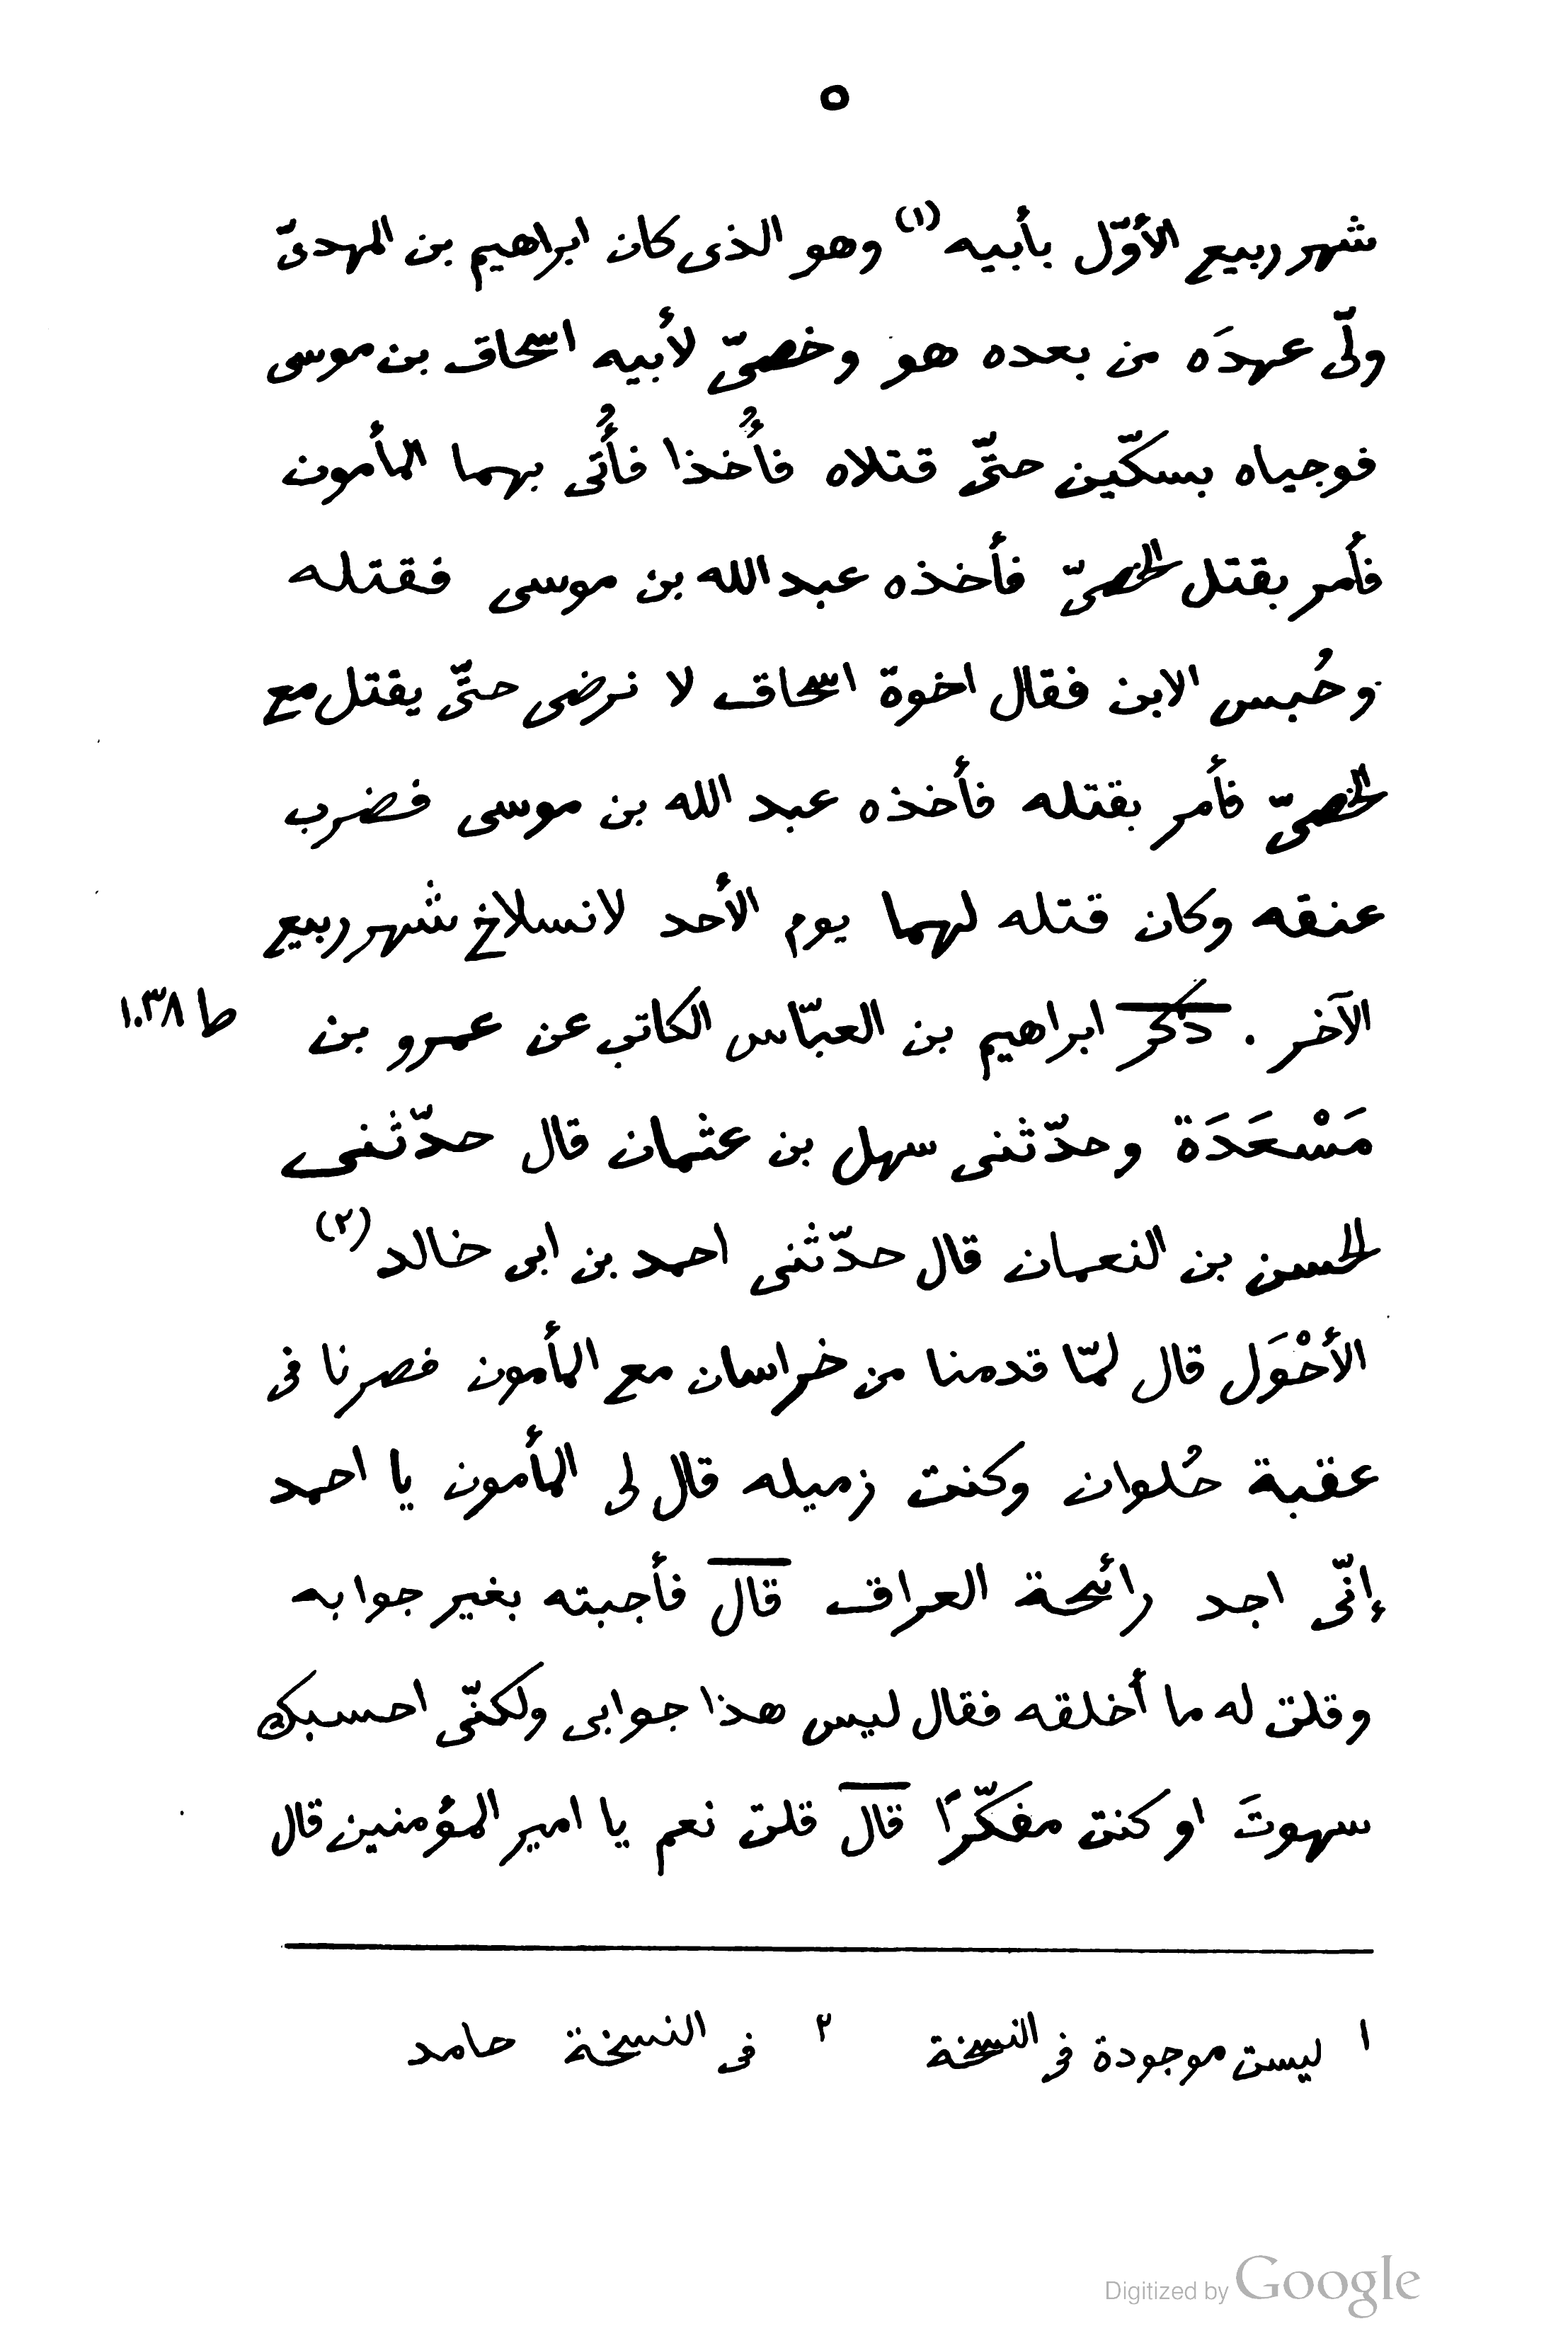 ٥
شهر ربيع الأوّل بأبيه (١) وهو الذى كان ابراهيم بن المهدىّ
ولّى عهدَه من بعده هو وخصىّ لأبيه اسحاق بن موسى
فوجياه بسكّين حتّى قتلاه فأُخذا فأُتى بهما المأمون
فأمر بقتل الخصىّ فأخذه عبد الله بن موسى فقتله
وحُبس الابن فقال اخوة اسحاق لا نرضى حتّى يقتل مع
الخصىّ فأمر بقتله فأخذه عبد الله بن موسى فضرب
عنقه وكان قتله لهما يوم الأحد لانسلاخ شهر ربيع
الآخر . ذكر ابراهيم بن العبّاس الكاتب عن عمرو بن ط ١٠٣٨
مَسْعَدَة وحدّثنى سهل بن عثمان قال حدّثنى
الحسن بن النعمان قال حدّثنى احمد بن ابى خالد (٢)
الأحْوَل قال لمّا قدمنا من خراسان مع المأمون فصرنا فى
عقبة حُلوان وكنت زميله قال لى المأمون يا احمد
إنّى اجد رائحة العراق قال فأجبته بغير جوابه
وقلت له ما أخلقه فقال ليس هذا جوابى ولكنّى احسبك
سهوتَ او كنت مفكّرًا قال قلت نعم يا امير المؤمنين قال
١ ليست موجودة فى النسخة ٢ فى النسخة حامد
Digitized by Google